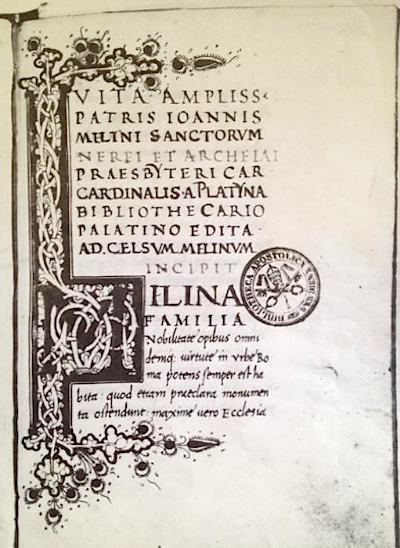 VITA AMPLISS
PATRIS IOANNIS
MELINI SANCTORVM
NEREI ET ARCHELAI
PRAESBYTERI CAR
CARDINALIS·A PLATYNA
BIBLIOTHECARIO
PALATINO EDITA·
AD·CELSVM·MELINVM
INCIPIT
MILINA
FAMILIA
Nobilitate opibus omni
demq; virtute in vrbe Ro
ma potens semper est ha
bita: quod etiam praeclara monumen
ta ostendunt: maxime uero Ecclesia
BIBLIOTHECA APOSTOLICA VATICANA